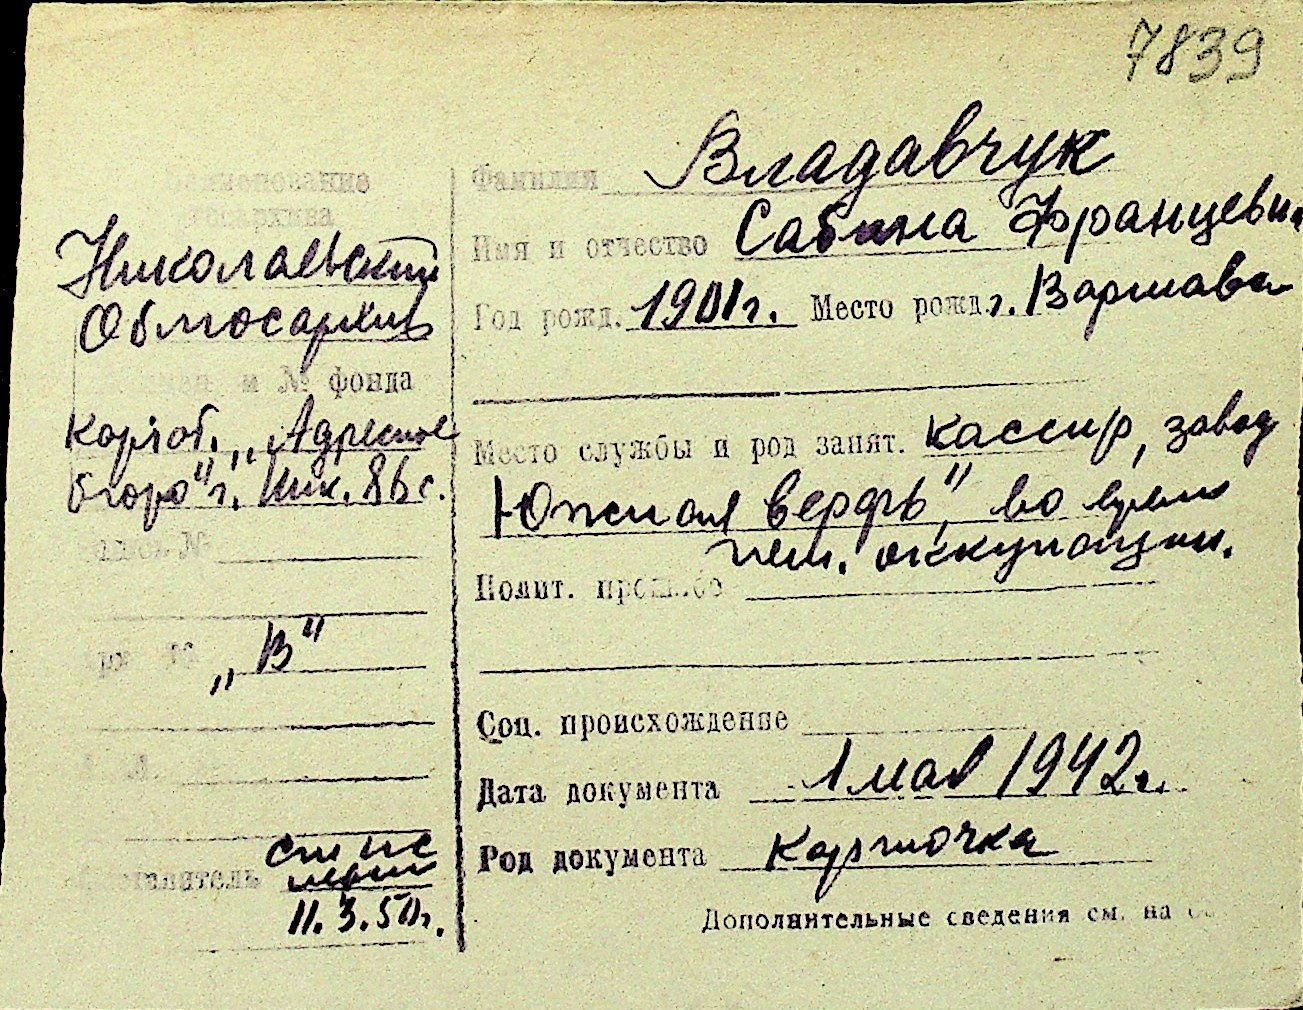 7839
Наименование
госархива
Николаевский
Облгосархив
и № фонда
картот. „Адресное
бюро" г. Ник. 86 с.
№
„В"
Составитель
11.3.50г.
Фамилия Владавчук
Имя и отчество Сабина Францевн
Год рожд. 1901г. Место рожд. г. Варшава
Место службы и род занят. кассир, завод
Южная верфь", во время
нем. оккупации.
Полит. прошлое
Соц. происхождение
Дата документа 1 мая 1942г.
Род документа Карточка
Дополнительные сведения см. на